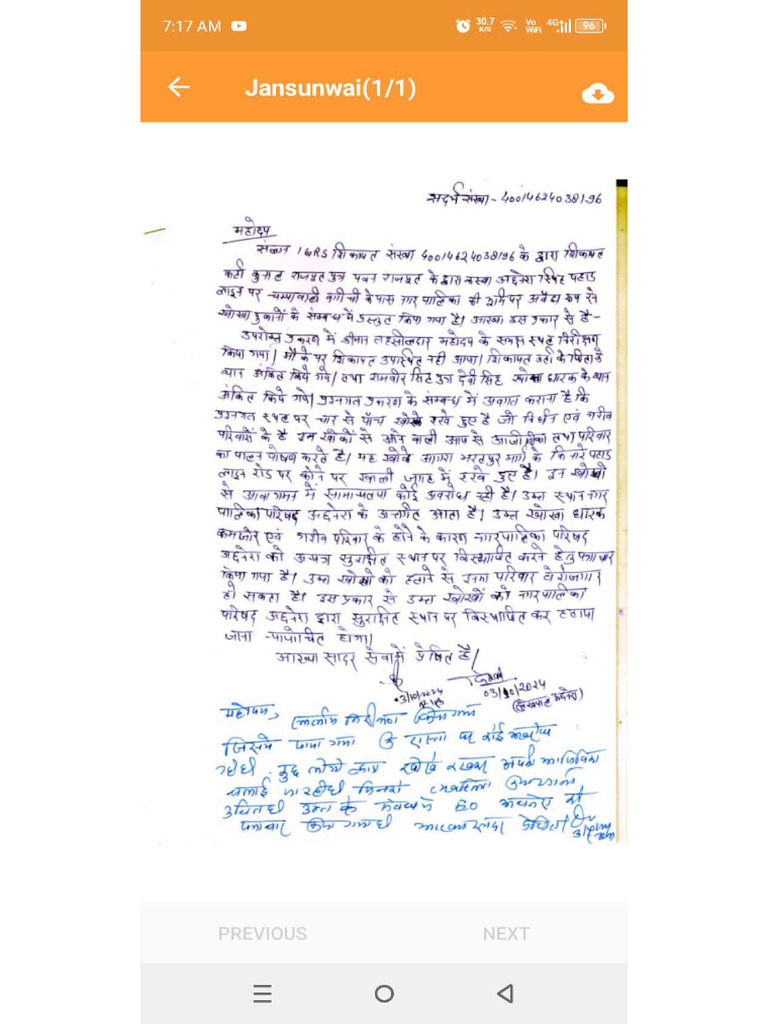 7:17 AM
30.7 K/S Vo WiFi 4G+ 96
Jansunwai(1/1)
सदर्भ संख्या - 40014624038196
महोदय
संलग्न IGRS शिकायत संख्या 40014624038196 के द्वारा शिकायत
कर्ता कुनाल राजपूत पुत्र पवन राजपूत के द्वारा कस्बा अछनेरा स्थित पहाड
लाइन पर चम्पावाली बगीची के पास नगर पालिका की भूमि पर अवैध रूप से
खोखा दुकानों के सम्बन्ध में प्रस्तुत किया गया है। आख्या इस प्रकार से है -
उपरोक्त प्रकरण में श्रीमान तहसीलदार महोदय के समक्ष स्थल निरीक्षण
किया गया। मौके पर शिकायत उपस्थित नही आया। शिकायत कर्ता के पिता के
व्यान अंकित किये गये। तथा रामवीर सिंह पुत्र देवी सिंह खोखा धारक के व्यान
अंकित किये गये। प्रश्नगत प्रकरण के सम्बन्ध में अवगत कराना है कि
प्रश्नगत स्थल पर चार से पाँच खोखे रखे हुए है जो निर्धन एवं गरीब
परिवारों के है इन खोकों से आने वाली आय से आजीविका तथा परिवार
का पालन पोषण करते है। यह खोखे आगरा भरतपुर मार्ग के किनारे पहाड
लाइन रोड पर कोने पर खाली जगह में रखे हुए है। इन खोखो
से आवागमन में सामान्यतया कोई अवरोध नही है। उक्त स्थान नगर
पालिका परिषद अछनेरा के अन्तर्गत आता है। उक्त खोखा धारक
कमजोर एवं गरीब परिवार के होने के कारण नगर पालिका परिषद
अछनेरा को अन्यत्र सुरक्षित स्थान पर विस्थापित करने हेतु पत्राचार
किया गया है। उक्त खोखो को हटाने से उनका परिवार बेरोजगार
हो सकता है। इस प्रकार से उक्त खोखों को नगर पालिका
परिषद अछनेरा द्वारा सुरक्षित स्थान पर विस्थापित कर हटाया
जाना न्यायोचित होगा।
आख्या सादर सेवा में प्रेषित है।
03/10/2024
03/10/2024
महोदय, स्थलीय निरीक्षण किया गया
जिसमें पाया गया कि रास्ता पर कोई अवरोध
नही है। कुछ लोगो द्वारा खोखे रखकर अपनी आजीविका
चलाई जा रही है
उचित है उक्त के सम्बन्ध में EO अछनेरा को
पत्राचार किया गया है आख्या सादर प्रेषित।
PREVIOUS
NEXT